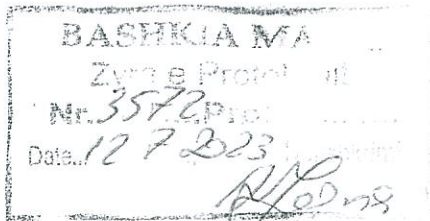 BASHKIA MA
Zyra e Protokollit
Nr. 3572 Prot
Data. 12 7 2023